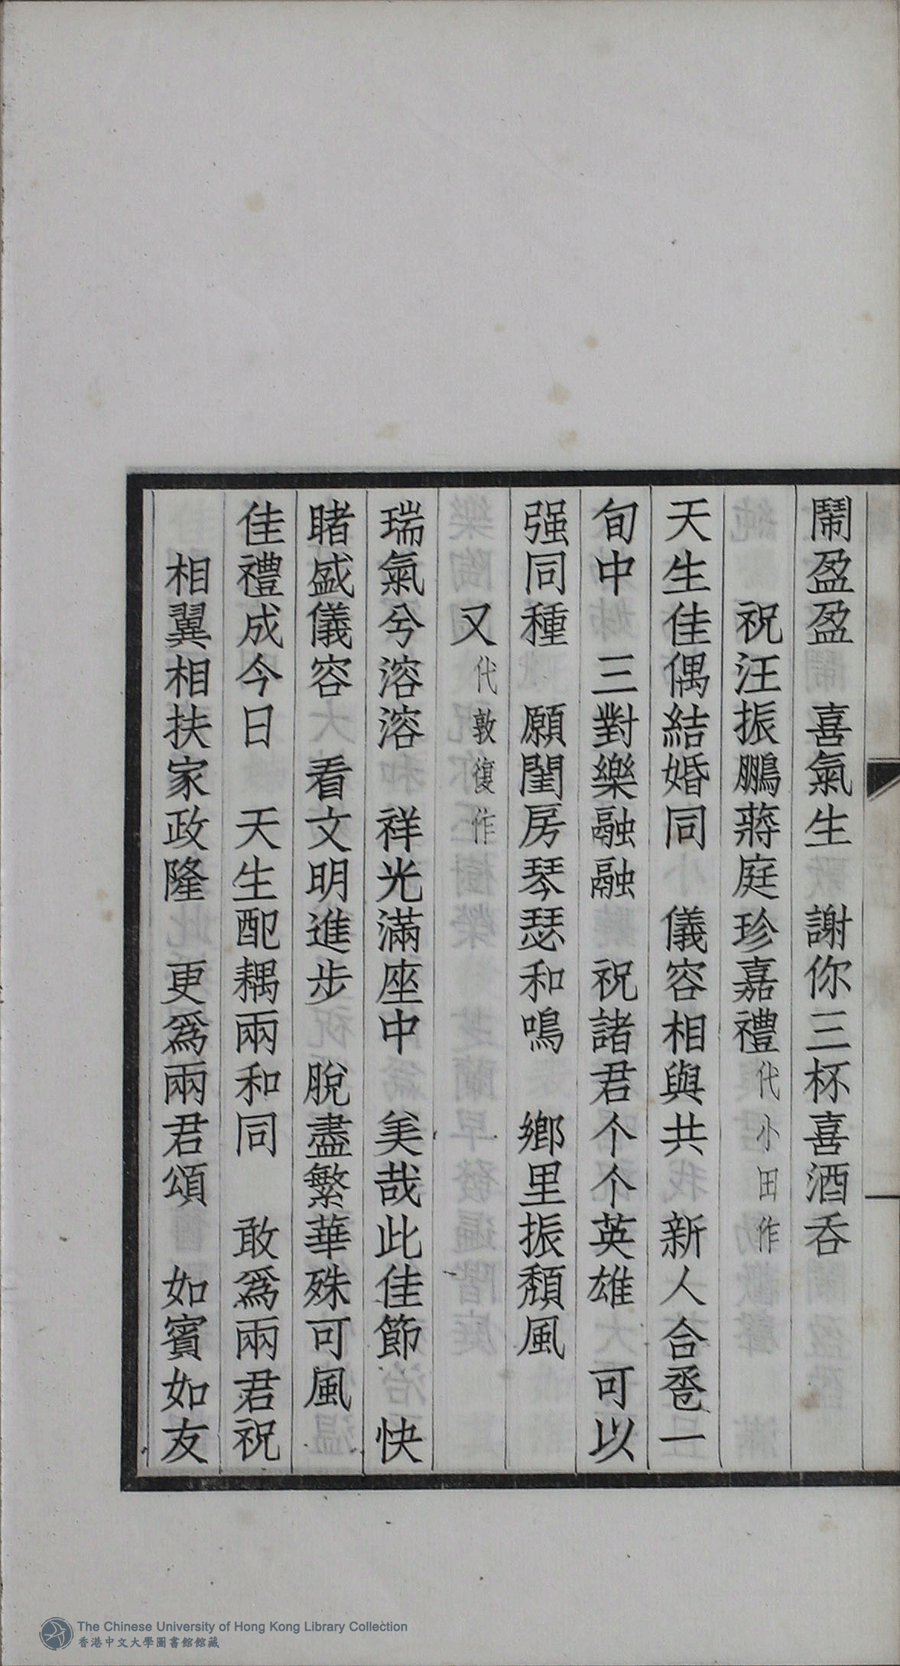 鬧盈盈　喜氣生　謝你三杯喜酒吞
祝汪振鵬蔣庭珍嘉禮代小田作
天生佳偶結婚同　儀容相與共　新人合卺一
旬中　三對樂融融　祝諸君个个英雄　可以
强同種　願閨房琴瑟和鳴　鄉里振頽風
又代敦復作
瑞氣兮溶溶　祥光滿座中　美哉此佳節　快
睹盛儀容　看文明進步　脫盡繁華殊可風
佳禮成今日　天生配耦兩和同　敢爲兩君祝
相翼相扶家政隆　更爲兩君頌　如賓如友
The Chinese University of Hong Kong Library Collection
香港中文大學圖書館館藏